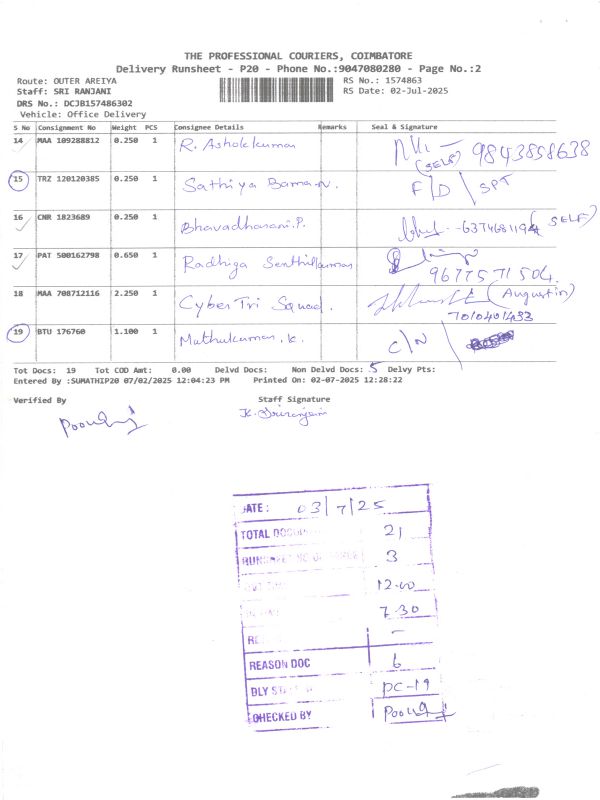 THE PROFESSIONAL COURIERS, COIMBATORE
Delivery Runsheet - P20 - Phone No.:9047080280 - Page No.:2
Route: OUTER AREIYA RS No.: 1574863
Staff: SRI RANJANI RS Date: 02-Jul-2025
DRS No.: DCJB157486302
Vehicle: Office Delivery
S No Consignment No Weight PCS Consignee Details Remarks Seal & Signature
14 MAA 109288812 0.250 1 R. Ashokkumar (SELF) 9843858638
15 TRZ 120120385 0.250 1 Sathiya Baman. F/D SPT
16 CNR 1823689 0.250 1 Bhavadharani.P. (SELF)
17 PAT 500162798 0.650 1 Radhiga Senthilkumar 9677571504.
18 MAA 708712116 2.250 1 Cyber Tri Squad. (Augustin)
7010401433
19 BTU 176760 1.100 1 Muthukumar. K. C/N
Tot Docs: 19 Tot COD Amt: 0.00 Delvd Docs: Non Delvd Docs: 5 Delvy Pts:
Entered By :SUMATHIP20 07/02/2025 12:04:23 PM Printed On: 02-07-2025 12:28:22
Verified By Staff Signature
K. Sriranjani
DATE: 03/7/25
TOTAL 21
3
12.00
7.30
-
REASON DOC 6
DLY PC-19
CHECKED BY